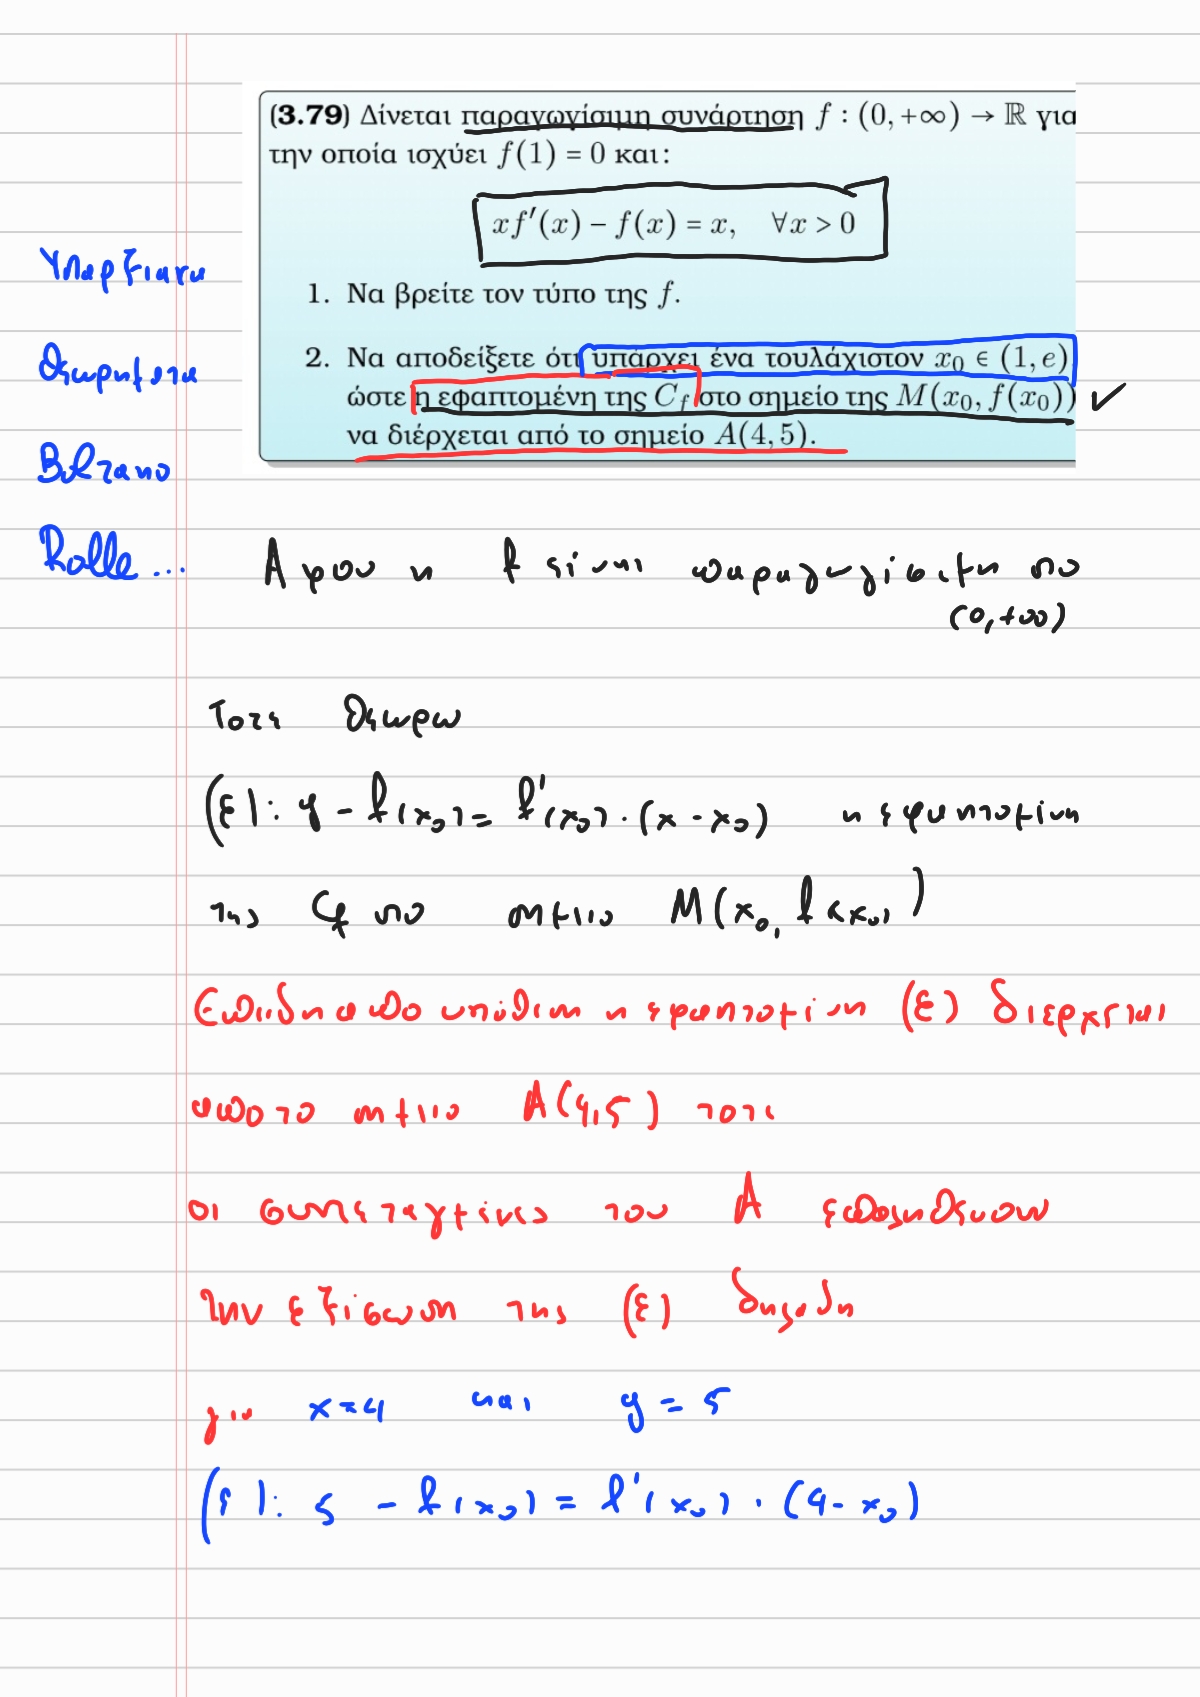 (3.79) Δίνεται παραγωγίσιμη συνάρτηση f : (0, +∞) → ℝ για
την οποία ισχύει f(1) = 0 και:
xf′(x) − f(x) = x, ∀x > 0
1. Να βρείτε τον τύπο της f.
2. Να αποδείξετε ότι υπάρχει ένα τουλάχιστον x₀ ∈ (1, e)
ώστε η εφαπτομένη της C_f στο σημείο της M(x₀, f(x₀)) ✓
να διέρχεται από το σημείο A(4, 5).
Υπαρξιακα
θεωρηματα
Bolzano
Rolle...
Αφου η f είναι παραγωγίσιμη στο
(0,+∞)
Τοτε θεωρω
(ε): y - f(x₀) = f'(x₀) · (x - x₀) η εφαπτομένη
της Cf στο σημειο M(x₀, f(x₀))
Επειδη απο υπόθεση η εφαπτομένη (ε) διερχεται
απο το σημειο A(4,5) τοτε
οι συντεταγμένες του A επαληθευουν
την εξίσωση της (ε) δηλαδη
για x=4 και y = 5
(ε): 5 - f(x₀) = f'(x₀) · (4 - x₀)